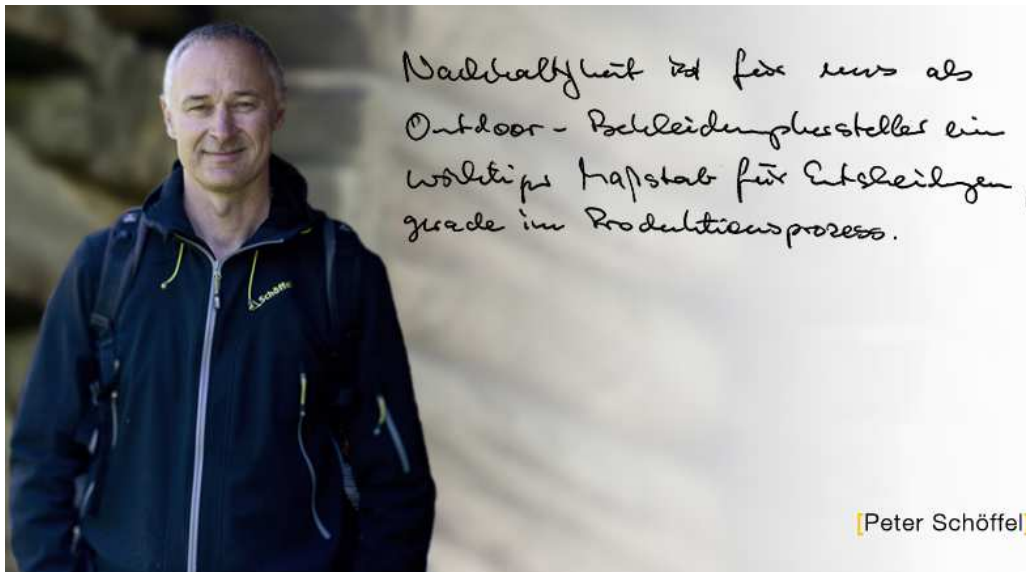 Nachhaltigkeit ist für uns als
Outdoor-Bekleidungshersteller ein
wichtiger Maßstab für Entscheidungen
gerade im Produktionsprozess.
Schöffel
[Peter Schöffel]